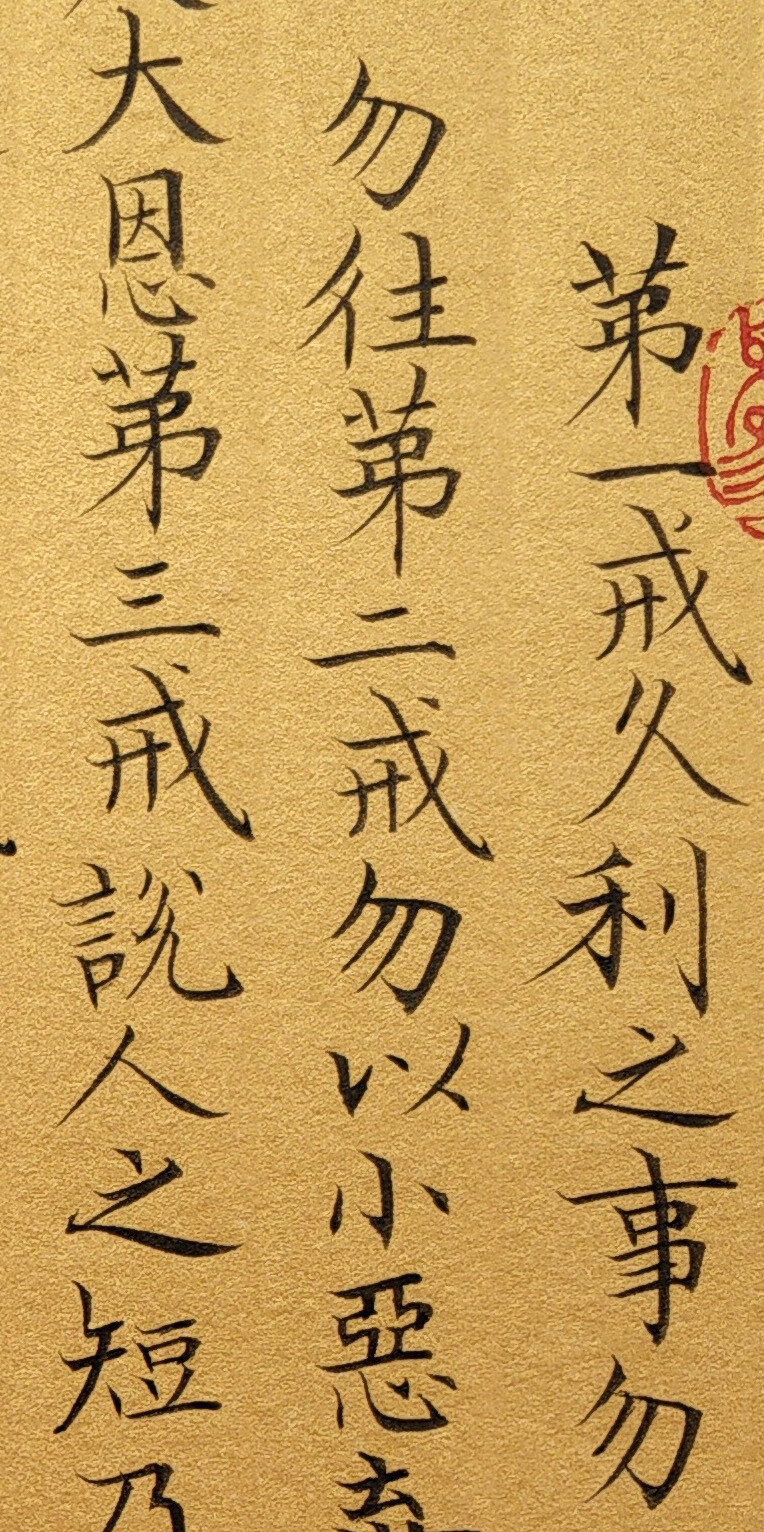 苐一戒久利之事勿
勿往苐二戒勿以小惡棄
大恩苐三戒說人之短乃